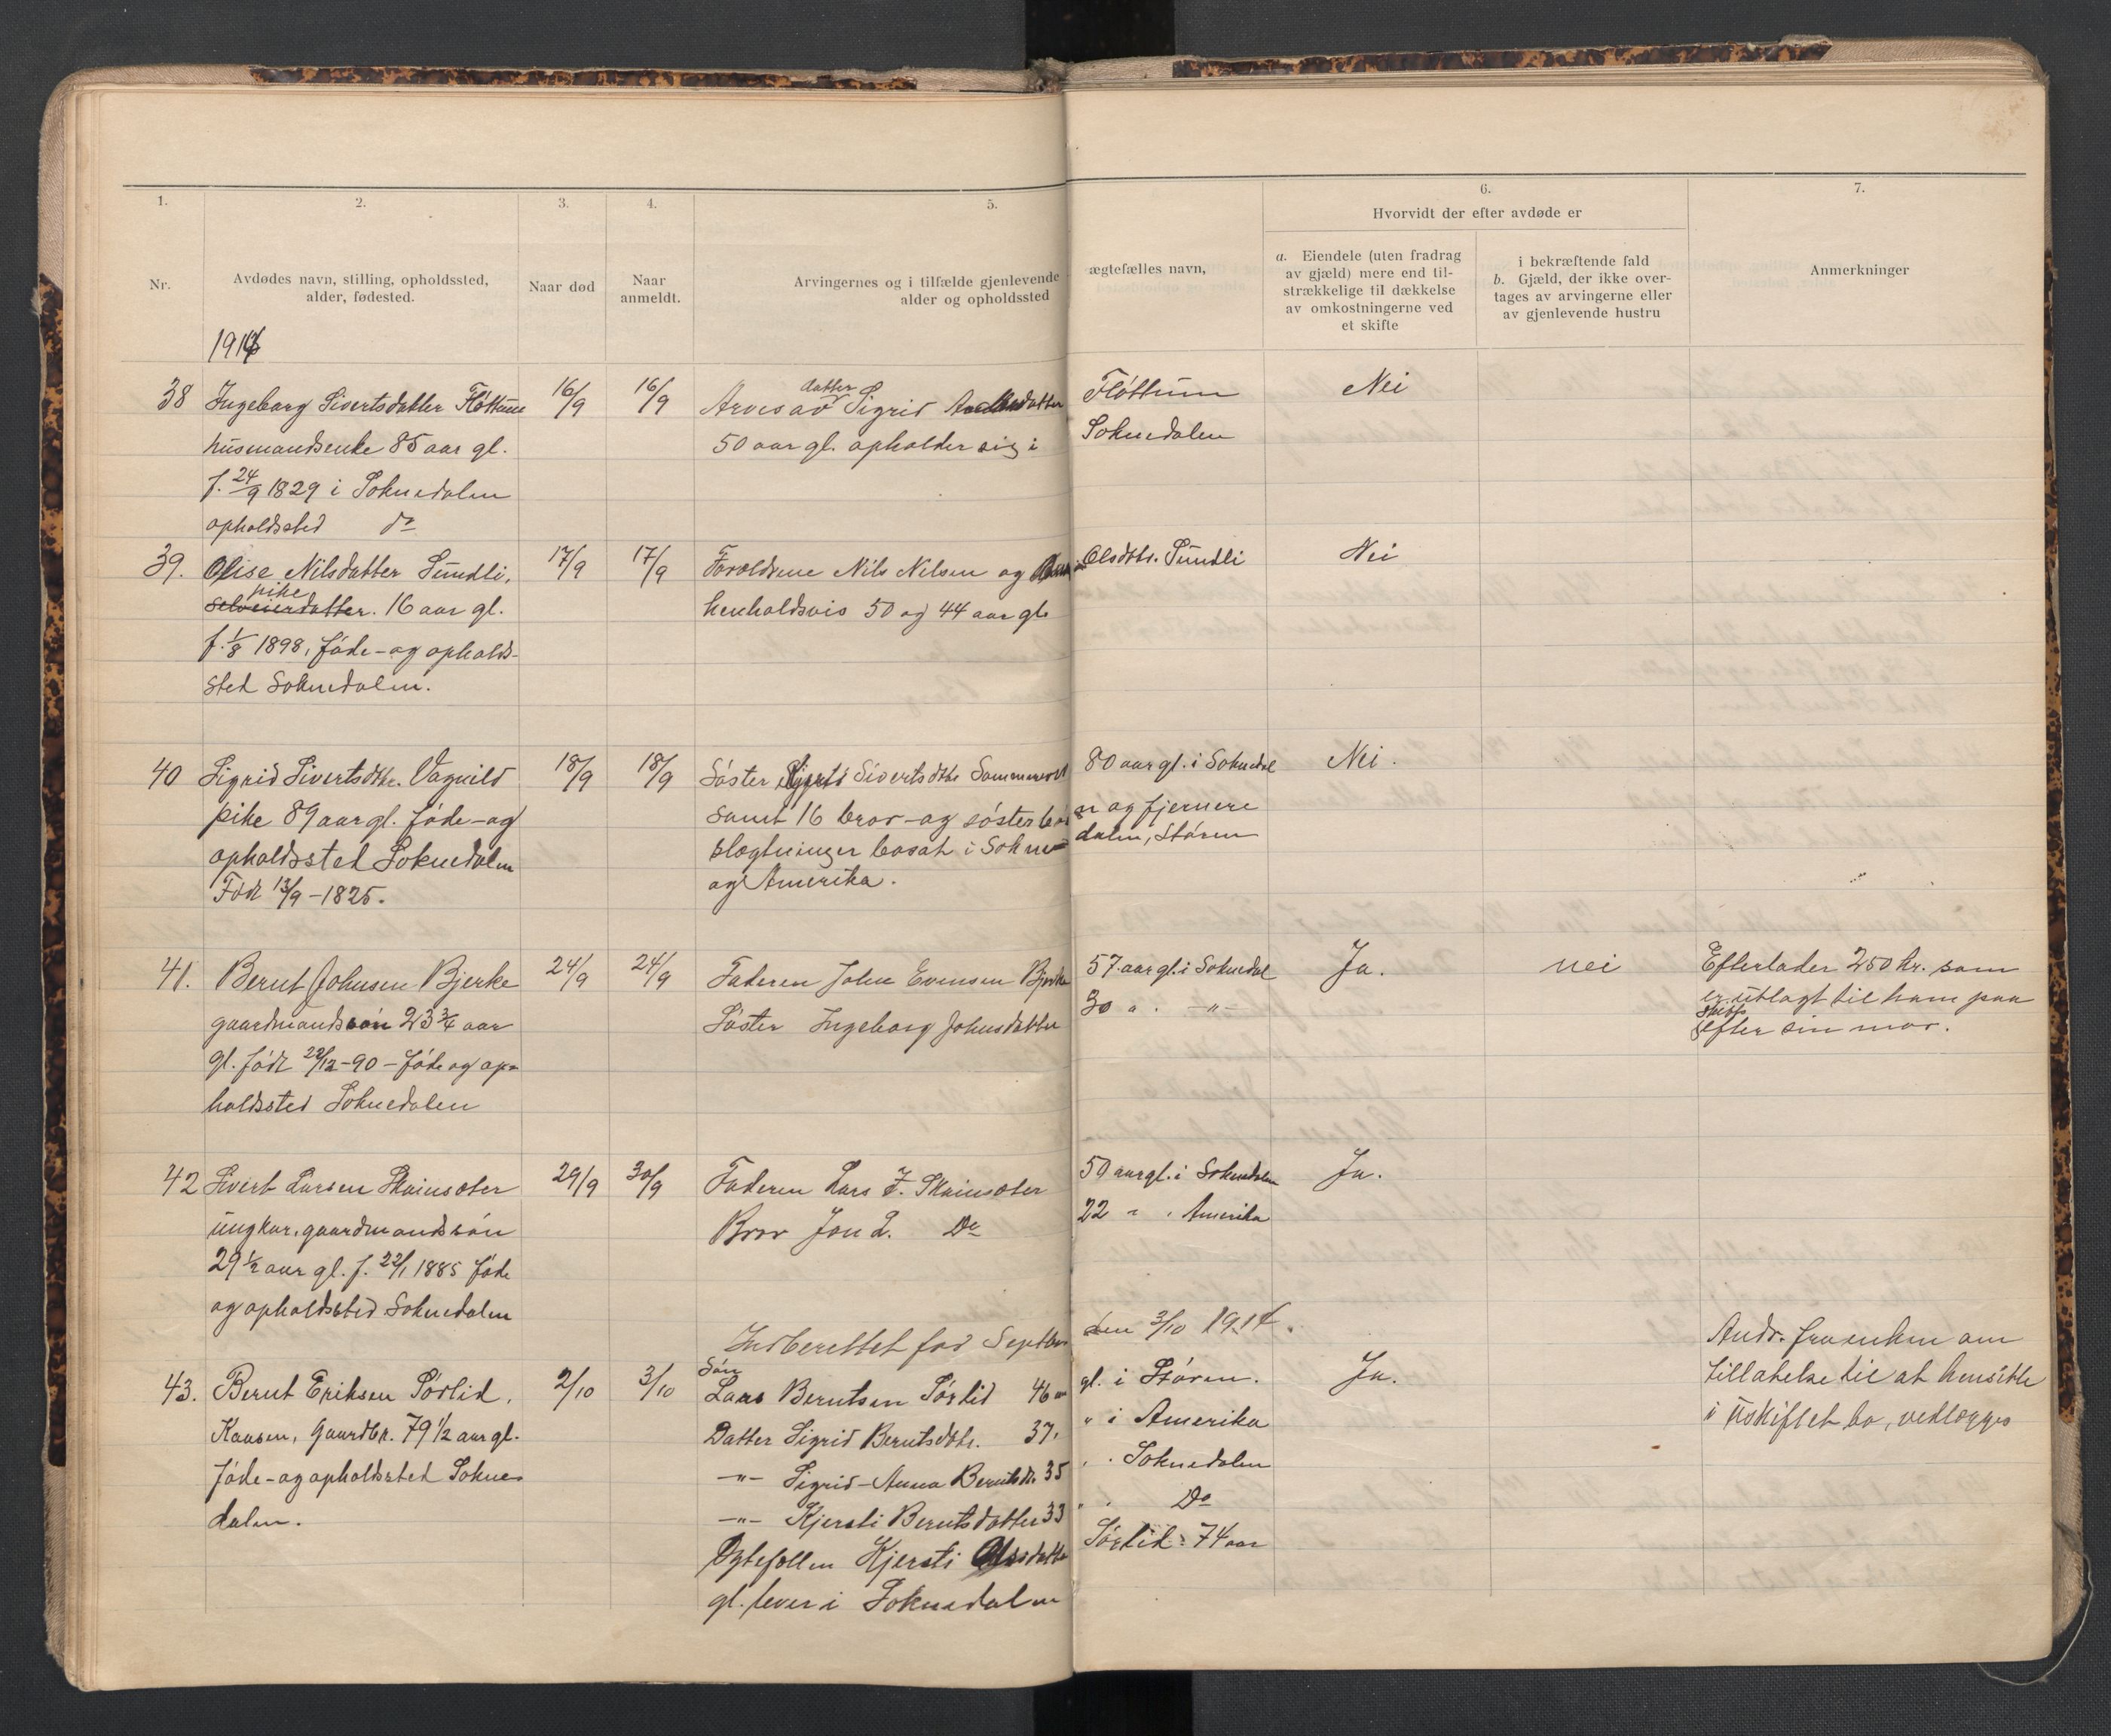 1. 2. 3. 4. 5. 6. 7.
Hvorvidt der efter avdøde er
Nr.
Avdødes navn, stilling, opholdssted,
alder, fødested.
Naar død
Naar
anmeldt.
Arvingernes og i tilfælde gjenlevende ægtefælles navn,
alder og opholdssted
a. Eiendele (uten fradrag
av gjæld) mere end til-
strækkelige til dækkelse
av omkostningerne ved
et skifte
i bekræftende fald
b. Gjæld, der ikke over-
tages av arvingerne eller
av gjenlevende hustru
Anmerkninger
1914
38 Ingeborg Sivertsdatter Fløttum
husmandsenke 85 aar gl.
f. 24/9 1829 i Soknedalen
opholdssted do
16/9 16/9
datter
Arves av Sigrid Fløttum
50 aar gl. opholder sig i Soknedalen
Nei
39. Olise Nilsdatter Sundli,
pike
selveierdatter. 16 aar gl.
f. 1/8 1898, føde- og opholds-
sted Soknedalen.
17/9 17/9
Forældrene Nils Nilsen og Olsdtr. Sundli
henholdsvis 50 og 44 aar gle
Nei
40 Sigrid Sivertsdtr. Vagnild
pike 89 aar gl. føde- og
opholdssted Soknedalen
Født 13/9 - 1825.
18/9 18/9
Søster Sivertsdtr 80 aar gl. i Soknedal
samt 16 bror- og søsterbørn og fjernere
slegtninger bosat i Soknedalen, Støren
og Amerika.
Nei.
41. Berut Johnsen Bjerke
gaardmandssøn 23 3/4 aar
gl. født 22/12-90 - føde og op-
holdssted Soknedalen
24/9 24/9
Faderen John Evensen Bjerke 57 aar gl. i Soknedal
Søster Ingeborg Johnsdatter 30 " . -"-
Ja.
nei
Efterlader 250 kr. som
er utlagt til ham paa
skifte
efter sin mor.
42 Sivert Larsen Skainsæter
ungkar, gaardmandssøn
29 1/2 aar gl. f. 22/1 1885 føde
og opholdssted Soknedalen
29/9 30/9
Faderen Lars J. Skainsæter 50 aar gl. i Soknedalen
Bror Jon L. Do 22 " . Amerika
Ja.
Indberettet for Septbr den 3/10 1914.
43. Berut Eriksen Sørlid,
Kaasen, Gaardbr. 79 1/2 aar gl.
føde- og opholdssted Sokne-
dalen.
2/10 3/10
Søn
Lars Berutsen Sørlid 46 aar gl. i Støren.
Datter Sigrid Berutsdtr. 37. " i Amerika
-"- Sigrid-Anna Berutsdr. 35 . . Soknedalen
-"- Kjersti Berutsdatter 33 " . Do
Egtefællen Kjersti Olsdatter Sørlid 74 aar
gl. lever i Soknedalen
Ja.
Andr. fra enken om
tillatelse til at hensitte
i uskiftet bo, vedlægges